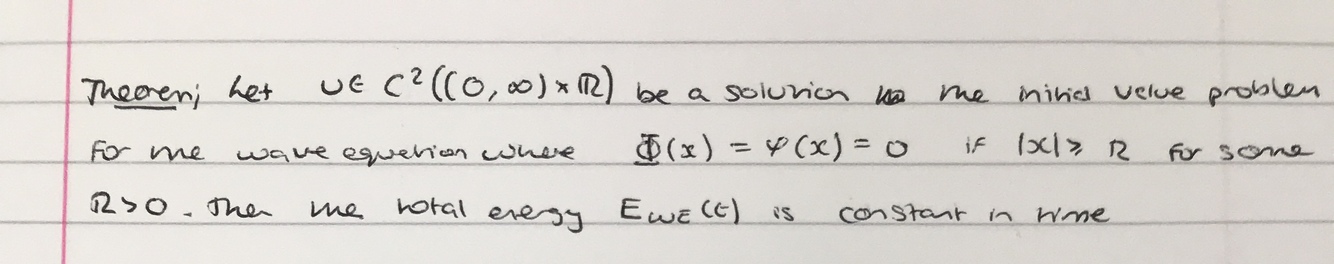 Theorem; Let u ∈ C²((0, ∞) × ℝ) be a solution to the initial value problem
for the wave equation where Φ(x) = φ(x) = 0 if |x| ≥ R for some
R > 0. Then the total energy E_WE(t) is constant in time